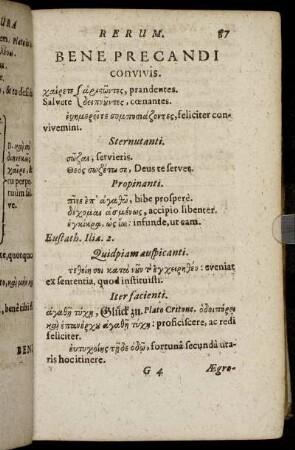 RERUM. 87
BENE PRECANDI
convivis.
χαίρετε { ἀριστῶντες, prandentes.
Salvete { δειπνῶντες, cœnantes.
εὐημερεῖτε συμποσιάζοντες, feliciter con-
vivemini.
Sternutanti.
σῶζου, servieris.
Θεὸς σωζέτω σε, Deus te servet.
Propinanti.
πῖνε ἐπ' ἀγαθῷ, bibe prosperè.
δέχομαι ἀσμένως, accipio libenter.
ἔγκιρνα, ὡς ἴω: infunde, ut eam.
Eustath. Ilia. 2.
Quidpiam auspicanti.
κατὰ νοῦν τὸ ἐγχειρηθέν: eveniat
ex sententia, quod instituisti.
Iter facienti.
ἀγαθῇ τύχῃ, Glück zu. Plato Critone. ὁδοιπόρει
καὶ ἐπανέρχου ἀγαθῇ τύχῃ: proficiscere, ac redi
feliciter.
εὐτυχοίης τῇδε ὁδῷ, fortunâ secundâ uta-
ris hoc itinere.
G 4 Ægro-